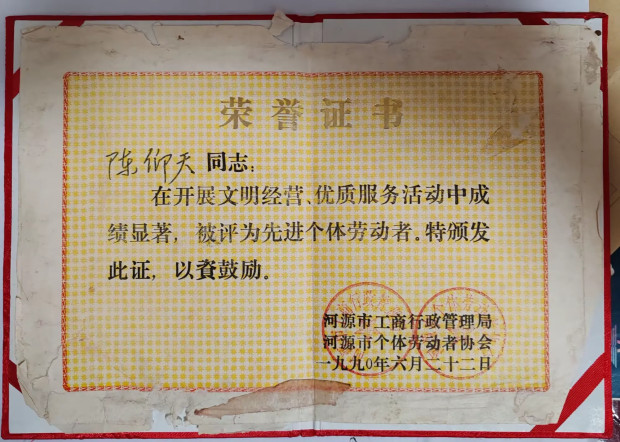 荣誉证书
陈仰天同志：
在开展文明经营、优质服务活动中成
绩显著，被评为先进个体劳动者。特颁发
此证，以资鼓励。
河源市工商行政管理局
河源市个体劳动者协会
一九九〇年六月二十二日